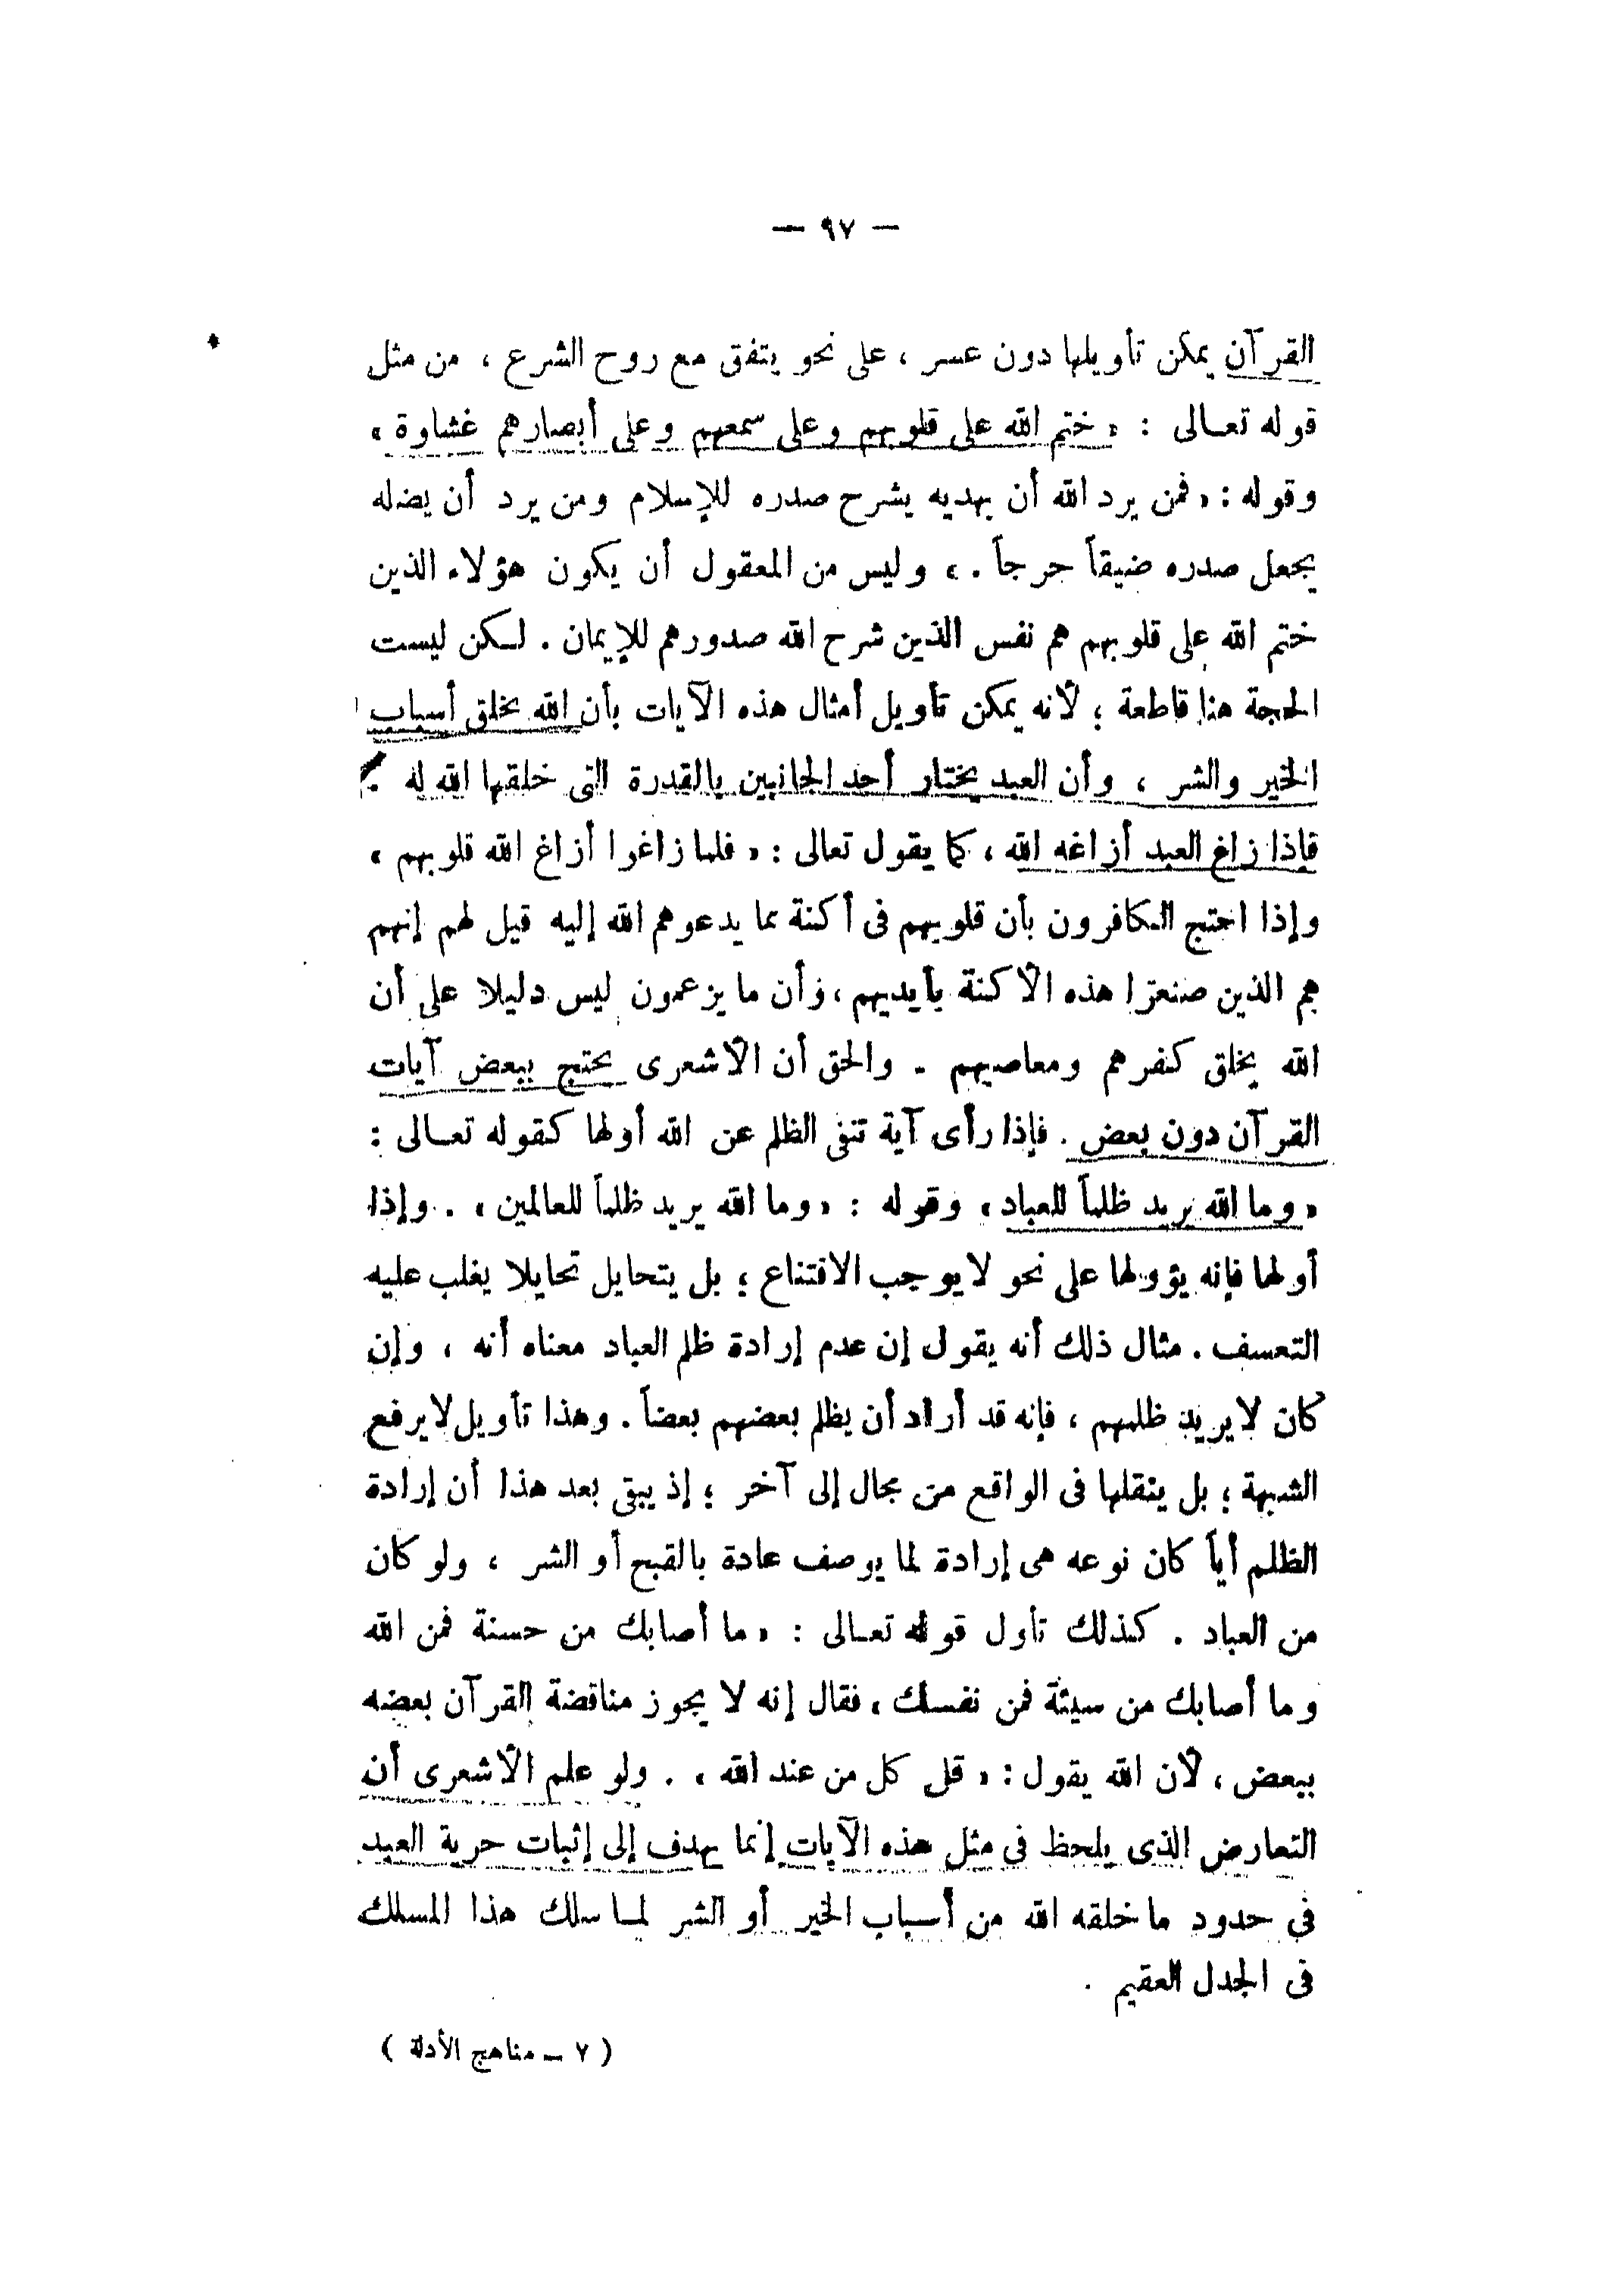 — ٩٧ —
القرآن يمكن تأويلها دون عسر ، على نحو يتفق مع روح الشرع ، من مثل
قوله تعـالى : « ختم الله على قلوبهم وعلى سمعهم وعلى أبصارهم غشاوة »
وقوله : « فمن يرد الله أن يهديه يشرح صدره للإسلام ومن يرد أن يضله
يجعل صدره ضيقاً حرجاً . » وليس من المعقول أن يكون هؤلاء الذين
ختم الله على قلوبهم هم نفس الذين شرح الله صدورهم للإيمان . لـكن ليست
الحجة هنا قاطعة ؛ لأنه يمكن تأويل أمثال هذه الآيات بأن الله يخلق أسباب
الخير والشر ، وأن العبد يختار أحد الجانبين بالقدرة التى خلقها الله له .
فإذا زاغ العبد أزاغه الله ، كما يقول تعالى : « فلما زاغوا أزاغ الله قلوبهم »
وإذا احتج الـكافرون بأن قلوبهم فى أكنة مما يدعوهم الله إليه قيل لهم إنهم
هم الذين صنعوا هذه الأكنة بأيديهم ، وأن ما يزعمون ليس دليلا على أن
الله يخلق كفرهم ومعاصيهم . والحق أن الأشعرى يحتج ببعض آيات
القرآن دون بعض . فإذا رأى آية تنفى الظلم عن الله أولها كقوله تعـالى :
« وما الله يريد ظلماً للعباد » وقوله : « وما الله يريد ظلماً للعالمين » . وإذا
أولها فإنه يؤولها على نحو لا يوجب الاقتناع ؛ بل يتحايل تحايلا يغلب عليه
التعسف . مثال ذلك أنه يقول إن عدم إرادة ظلم العباد معناه أنه ، وإن
كان لا يريد ظلمهم ، فإنه قد أراد أن يظلم بعضهم بعضاً . وهذا تأويل لا يرفع
الشبهة ؛ بل ينقلها فى الواقع من مجال إلى آخر ؛ إذ يبقى بعد هذا أن إرادة
الظلم أياً كان نوعه هى إرادة لما يوصف عادة بالقبح أو الشر ، ولو كان
من العباد . كذلك تأول قوله تعـالى : « ما أصابك من حسنة فمن الله
وما أصابك من سيئة فمن نفسك » فقال إنه لا يجوز مناقضة القرآن بعضه
ببعض ، لأن الله يقول : « قل كل من عند الله » . ولو علم الأشعرى أن
التعارض الذى يلحظ فى مثل هذه الآيات إنما يهدف إلى إثبات حرية العبد
فى حدود ما خلقه الله من أسباب الخير أو الشر لمـا سلك هذا المسلك
فى الجدل العقيم .
( ٧ – مناهج الأدلة )